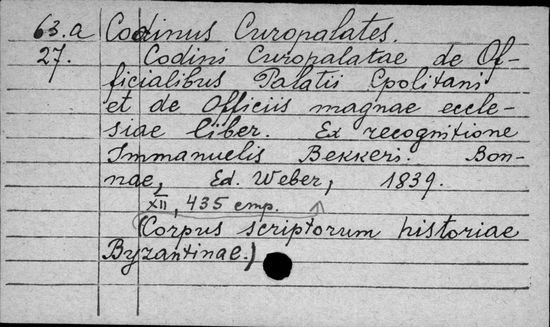 63.a Codinus Curopalates.
27. Codini Curopalatae de Of-
ficialibus Palatii Cpolitani
et de Officiis magnae eccle-
siae liber. Ex recognitione
Immanuelis Bekkeri. Bon-
nae, Ed. Weber, 1839.
XII, 435 стр.
(Corpus scriptorum historiae
Byzantinae.)